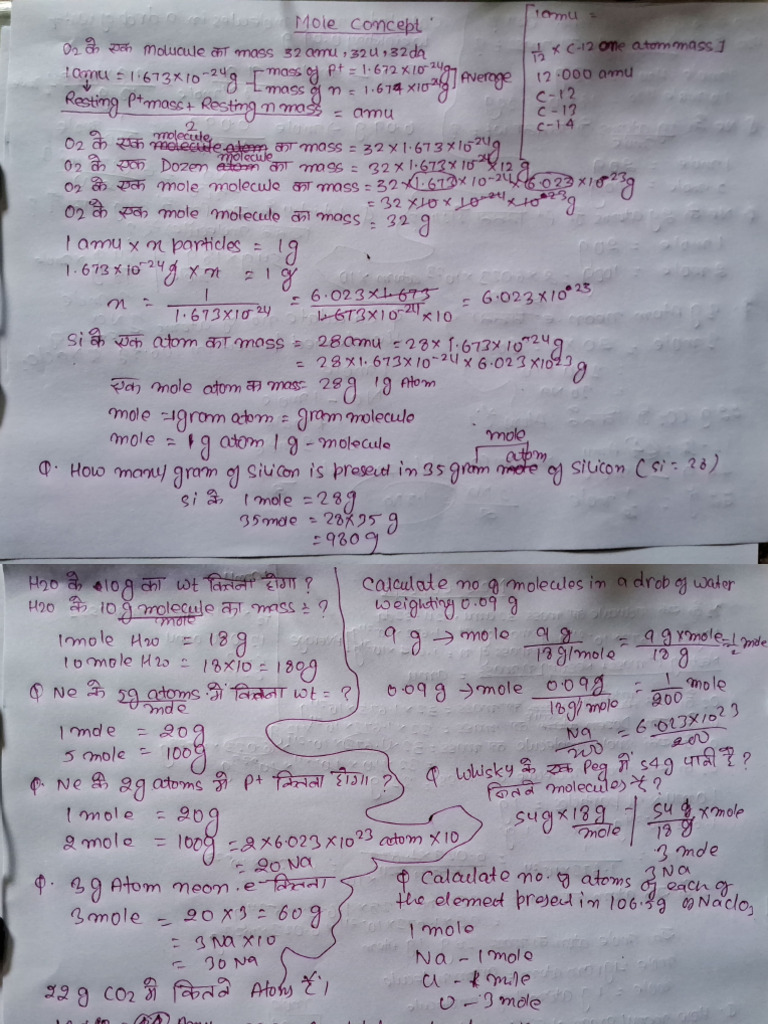 Mole Concept
1 amu =
1/12 × C-12 one atom mass]
12.000 amu
C-12
C-13
C-14
O2 के एक Molucule का mass 32 amu, 32u, 32da
1 amu = 1.673×10-24g [mass of P+ = 1.672×10-24g
mass of n = 1.674×10-24g] Average
Resting P+ mass + Resting n mass / 2 = amu
O2 के एक molecule का mass = 32×1.673×10-24g
O2 के एक Dozen molecule का mass = 32×1.673×10-24×12 g
O2 के एक mole molecule का mass = 32×1.673×10-24×6.023×10^23g
= 32×10×10-24×10^23g
O2 के एक mole molecule का mass = 32 g
1 amu × n particles = 1g
1.673×10-24g × n = 1 g
n = 1/1.673×10-24 = 6.023×1.673/1.673×10-24×10 = 6.023×10^23
Si के एक atom का mass = 28 amu = 28×1.673×10-24g
= 28×1.673×10-24×6.023×10^23g
एक mole atom का mass = 28g 1g Atom
mole = 1gram atom = gram molecule
mole = 1g atom 1g-molecule
mole
Q. How many gram of silicon is present in 35 gram atom of silicon (Si = 28)
Si के 1 mole = 28g
35 mole = 28×35 g
= 980 g
H2O के 10g का wt कितना होगा?
H2O के 10 g molecule का mass = ?
mole
1 mole H2O = 18g
10 mole H2O = 18×10 = 180g
Q Ne के 5g atoms में कितना wt = ?
mole
1 mole = 20g
5 mole = 100g
Q. Ne के 2g atoms में P+ कितना होगा?
1 mole = 20g
2 mole = 100g = 2×6.023×10^23 atom ×10
= 20 NA
Q. 3g Atom neon. e- कितना
3 mole = 20×3 = 60g
= 3 NA×10
= 30 NA
22g CO2 में कितने Atoms हैं।
Calculate no of molecules in a drob of water
weighting 0.09 g
9 g → mole 9 g/18g/mole = 9g×mole/18 g = 1/2 mole
0.09g → mole 0.09g/18g/mole = 1/200 mole
NA/200 = 6.023×10^23/200
Q Whisky के एक Peg में 54g पानी है?
कितने molecules है?
54g×18g/mole 54 g/18 g × mole
3 mole
3 NA
Q Calculate no. of atoms of each of
the element present in 106.5g of NaClO3
1 mole
Na - 1 mole
Cl - 1 mole
O - 3 mole